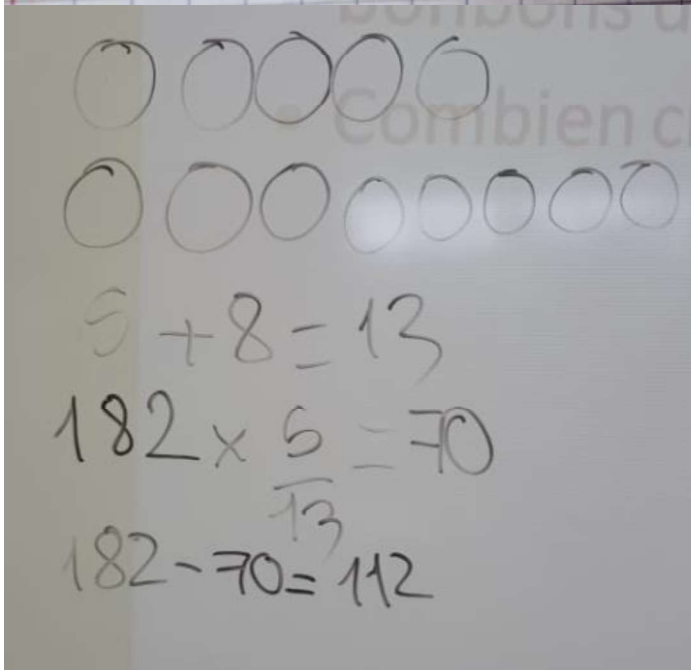 bonbons d
• Combien c
5 + 8 = 13
182 × 5/13 = 70
182 - 70 = 112